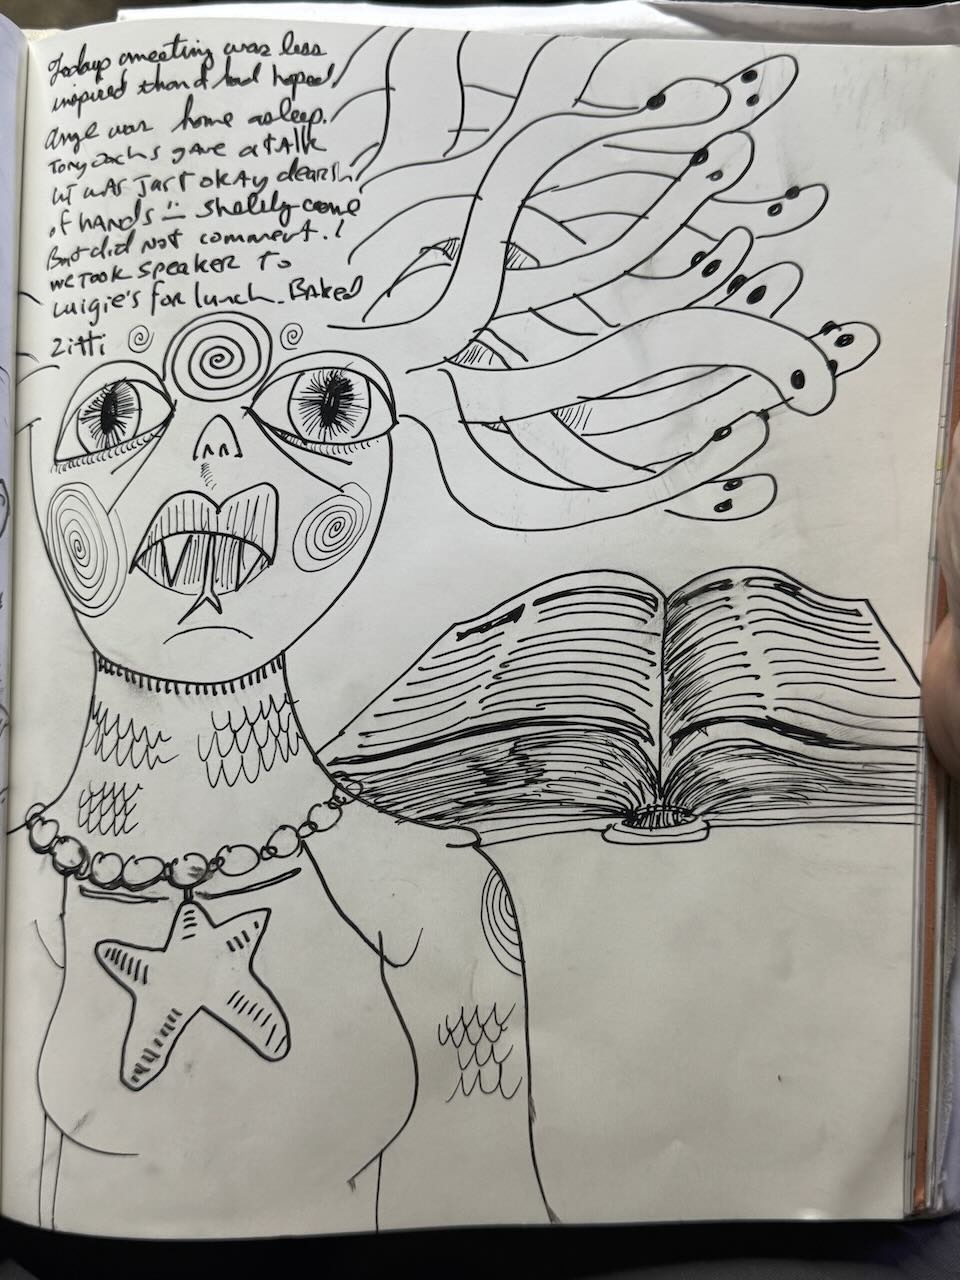 Todays meeting was less
inspired than I had hoped
Angl was home asleep.
Tony gave a talk
ut was Jast okay dearth
of hands shelely came
But did not comment.!
we took speaker to
Luigie's for lunch. Baked
Zitti